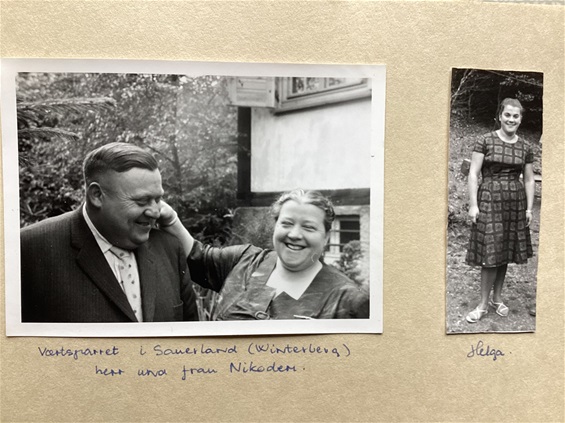 Værtsparret i Sauerland (Winterberg)
herr und frau Nikodem.
Helga.